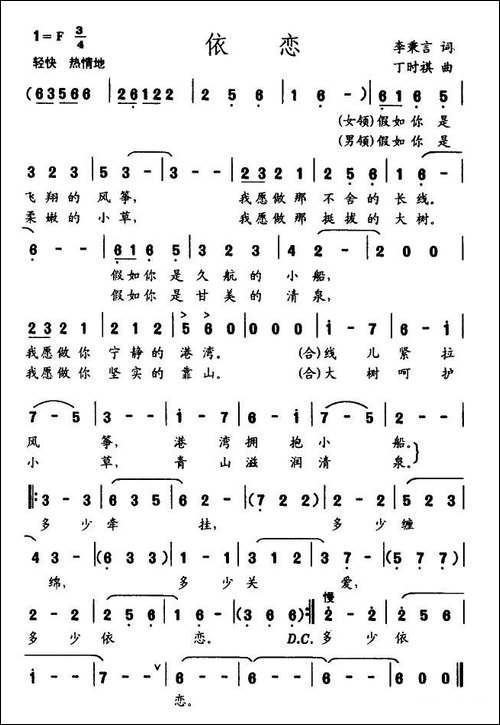 1=F 3/4
依恋
李秉言 词
轻快 热情地
丁时祺 曲
(6 3 5 6 6 | 2 6 1 2 2 | 2 5 6 | 1 6 -) | 6 1 6 5 |
(女领)假如你是
(男领)假如你是
3 2 3 | 5 3 - | 3 - - | 2 3 2 1 | 2 5 6 | 1 6 - |
飞翔的 风筝, 我愿做那 不舍的 长线。
柔嫩的 小草, 我愿做那 挺拔的 大树。
6 - - | 6 1 6 5 | 3 2 3 | 4 2 - | 2 0 0 |
假如你 是久航的 小船,
假如你 是甘美的 清泉,
2 3 2 1 | 2 1 2 | 5 6 0 | 0 0 0 | 1 - 7 | 6 - 1 |
我愿做你 宁静的 港湾。 (合)线 儿 紧 拉
我愿做你 坚实的 靠山。 (合)大 树 呵 护
7 - 5 | 3 - - | 1 - 7 | 6 - 1 | 7 - 5 | 2 - - |
风 筝, 港 湾 拥 抱 小 船。
小 草, 青 山 滋 润 清 泉。
3 - 3 | 6 3 5 | 6 2 - | (7 2 2) | 2 - 2 | 5 2 3 |
多 少 牵 挂, 多 少 缠
4 3 - | (6 3 3) | 1 - 1 | 3 1 2 | 3 7 - | (5 7 7) |
绵, 多 少 关 爱,
慢
2 - 2 | 2 5 6 | 1 6 - | (3 6 6) :| 2 - 2 | 2 5 6 |
多 少 依 恋。 D.C. 多 少 依
1 - - | 7 - - ∨ | 6 - - | 6 - - | 6 - - | 6 0 0 ‖
恋。